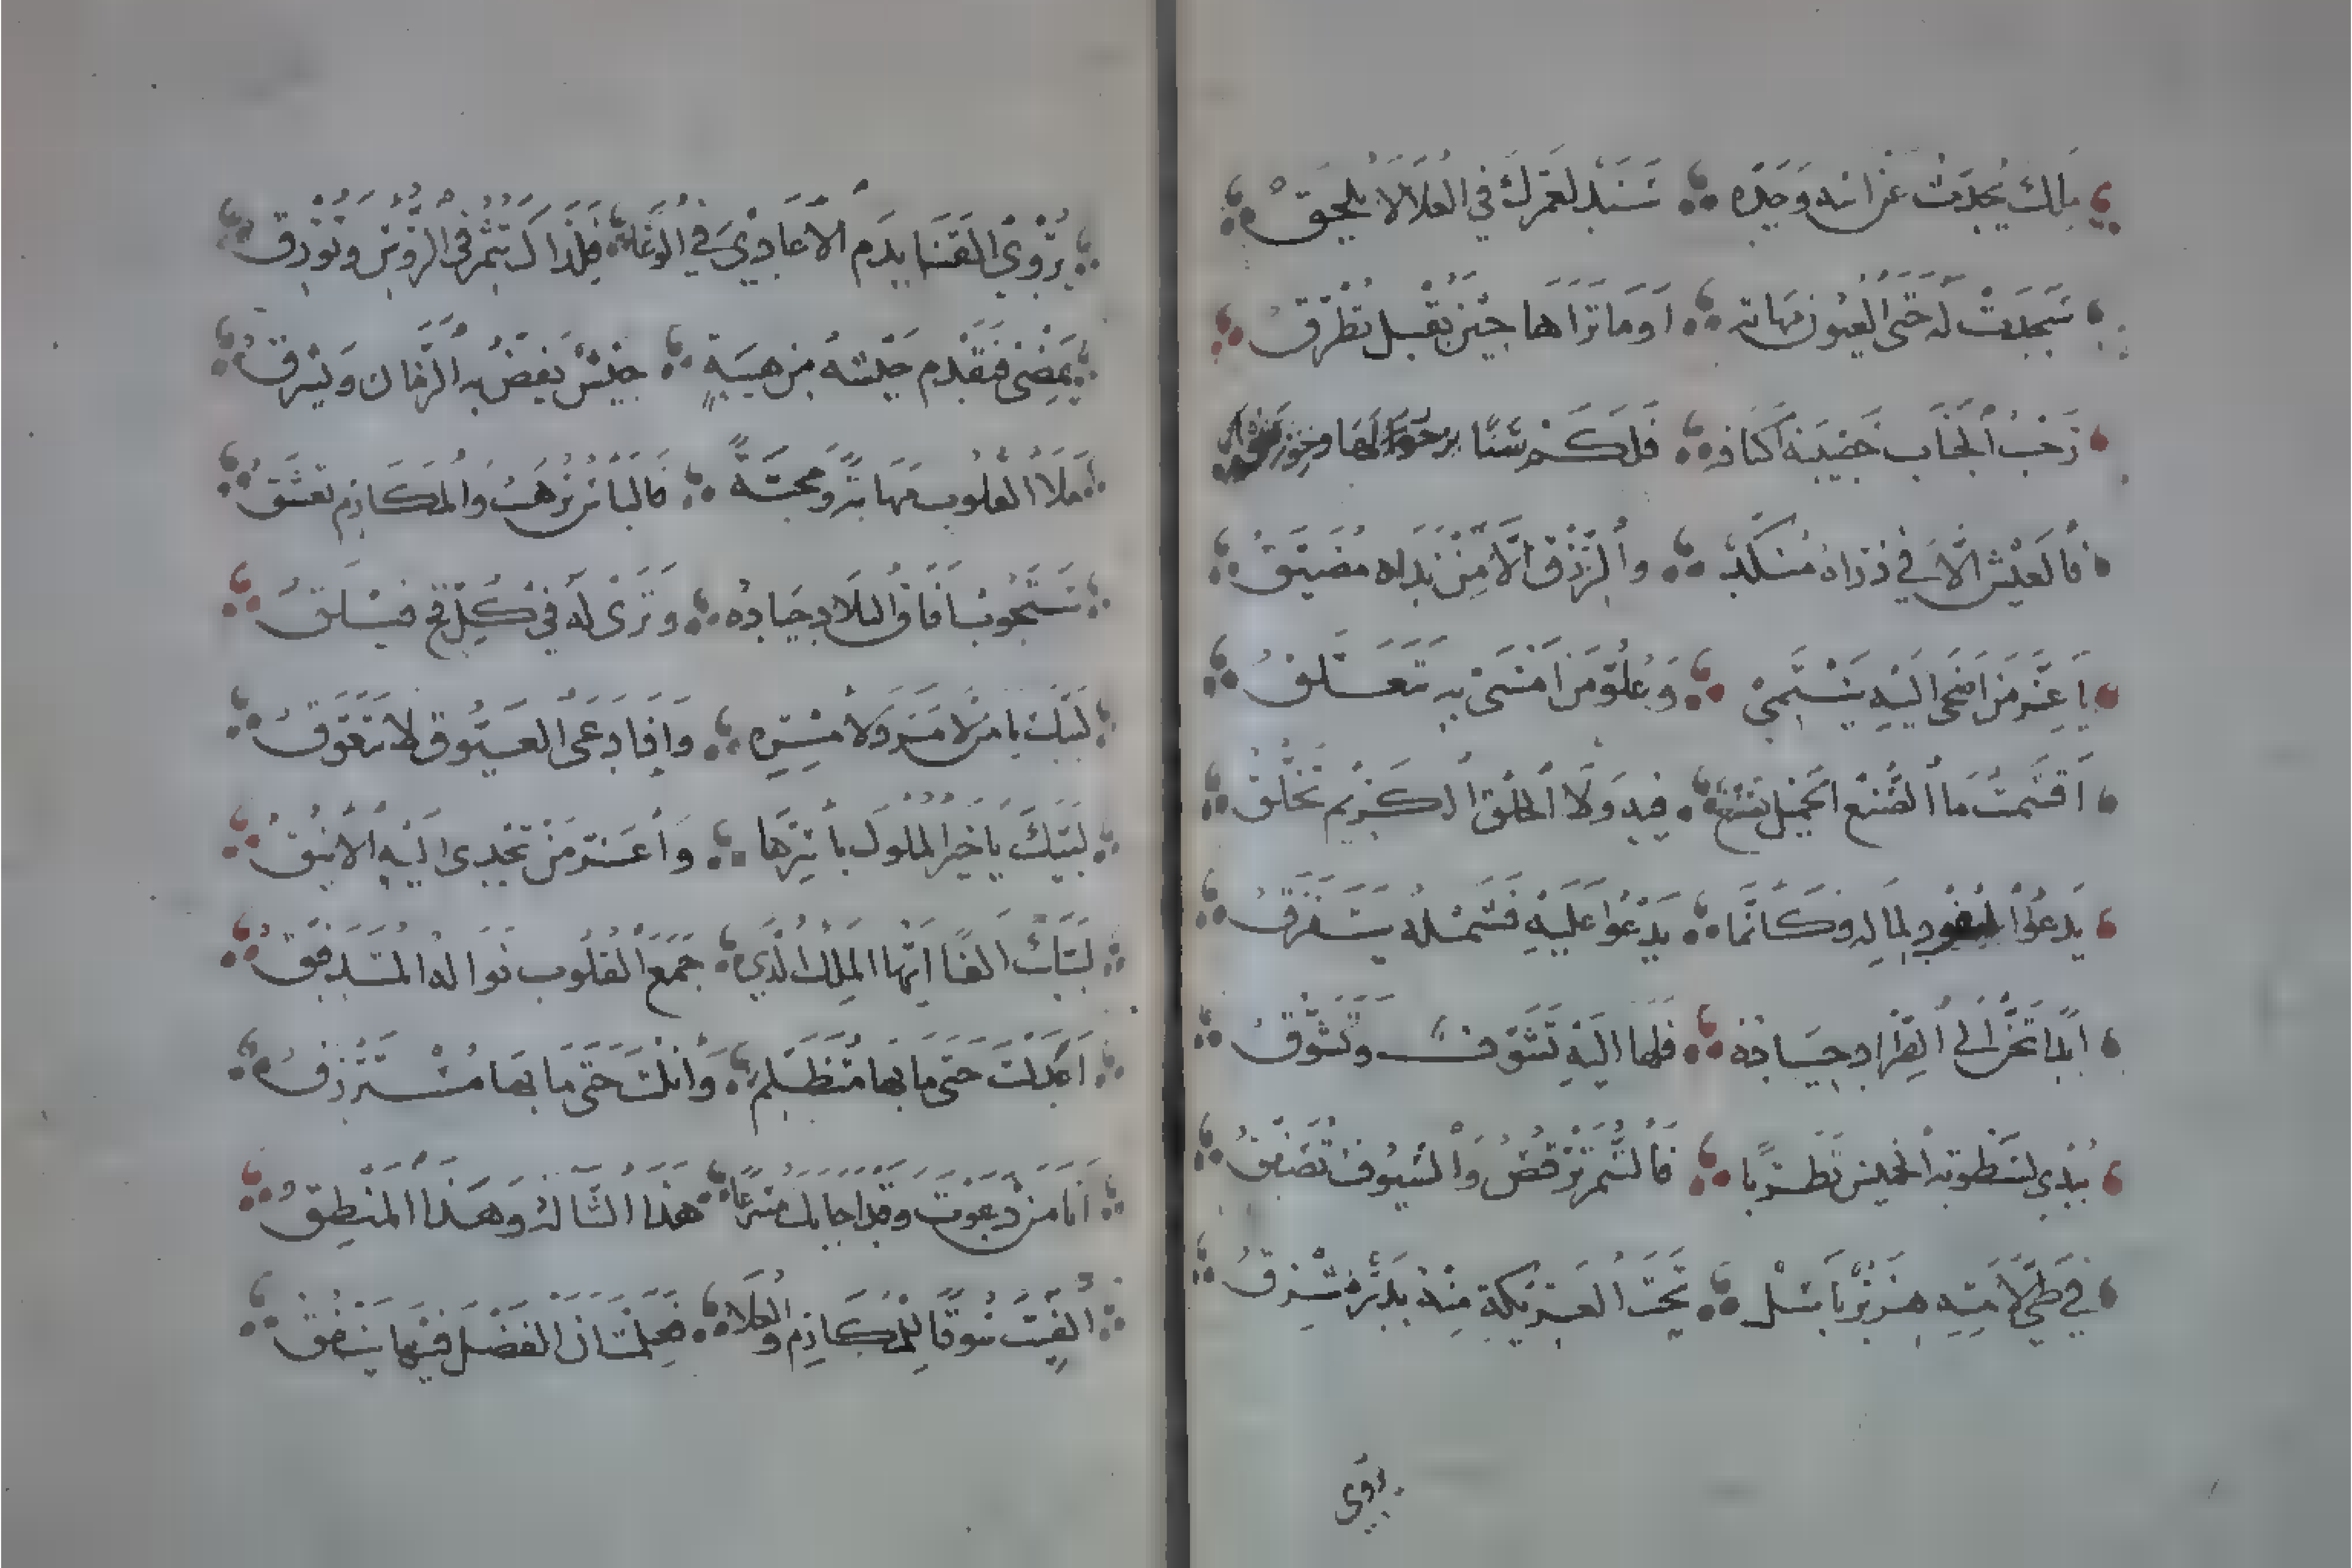 ملك يحدث عن أبيه وجده سند لعمرك في العلا لا يلحق
سجدت له حتى العيون مهابة أوما تراها حين يقبل تطرق
رحب الجناب خصيبة أكنافه فلكم
فالعيش إلا في ذراه منكد والرزق إلا من يداه مضيق
يا عز من أضحى إليه ينتمي وعلو من أمسى به يتعلق
أقسمت ما الصنع الجميل تصنع فيه ولا الخلق الكريم تخلق
يدعوا لماله وكأنما يدعوا عليه فشمله يتفرق
أبدا تحن إلى الطراد جياده فلها إليه تشوف وتشوق
يبدي لسطوته الخميس تطربا فالسمر ترقص والسيوف تصفق
في طي لامته هزبر باسل تحت العريكة منه بدر مشرق
يروي
يروي القنا بدم الأعادي في الوغا فلذاك تثمر في الرؤس وتورق
يمضي فيقدم جيشه من هيبة جيش يغص به الزمان ويشرق
ملأ القلوب مهابة ومحبة فالبأس يرهب والمكارم تعشق
ستجوب آفاق البلاد جياده وترى له في كل فج فيلق
لبيك يا من لا مرد لأمره وإذا دعى العيوق لا يتعوق
لبيك يا خير الملوك بأسرها وأعز من تحدى إليه الأينق
لبيك ألفا أيها الملك الذي جمع القلوب نواله المتدفق
أعدلت حتى ما بها متظلم وأنلت حتى ما بها مسترزق
أنا من دعوت وقد أجابك مسرعا هذا الثنا له وهذا المنطق
ألفيت سوقا للمكارم والعلا فعلمت أن الفضل فيها ينفق